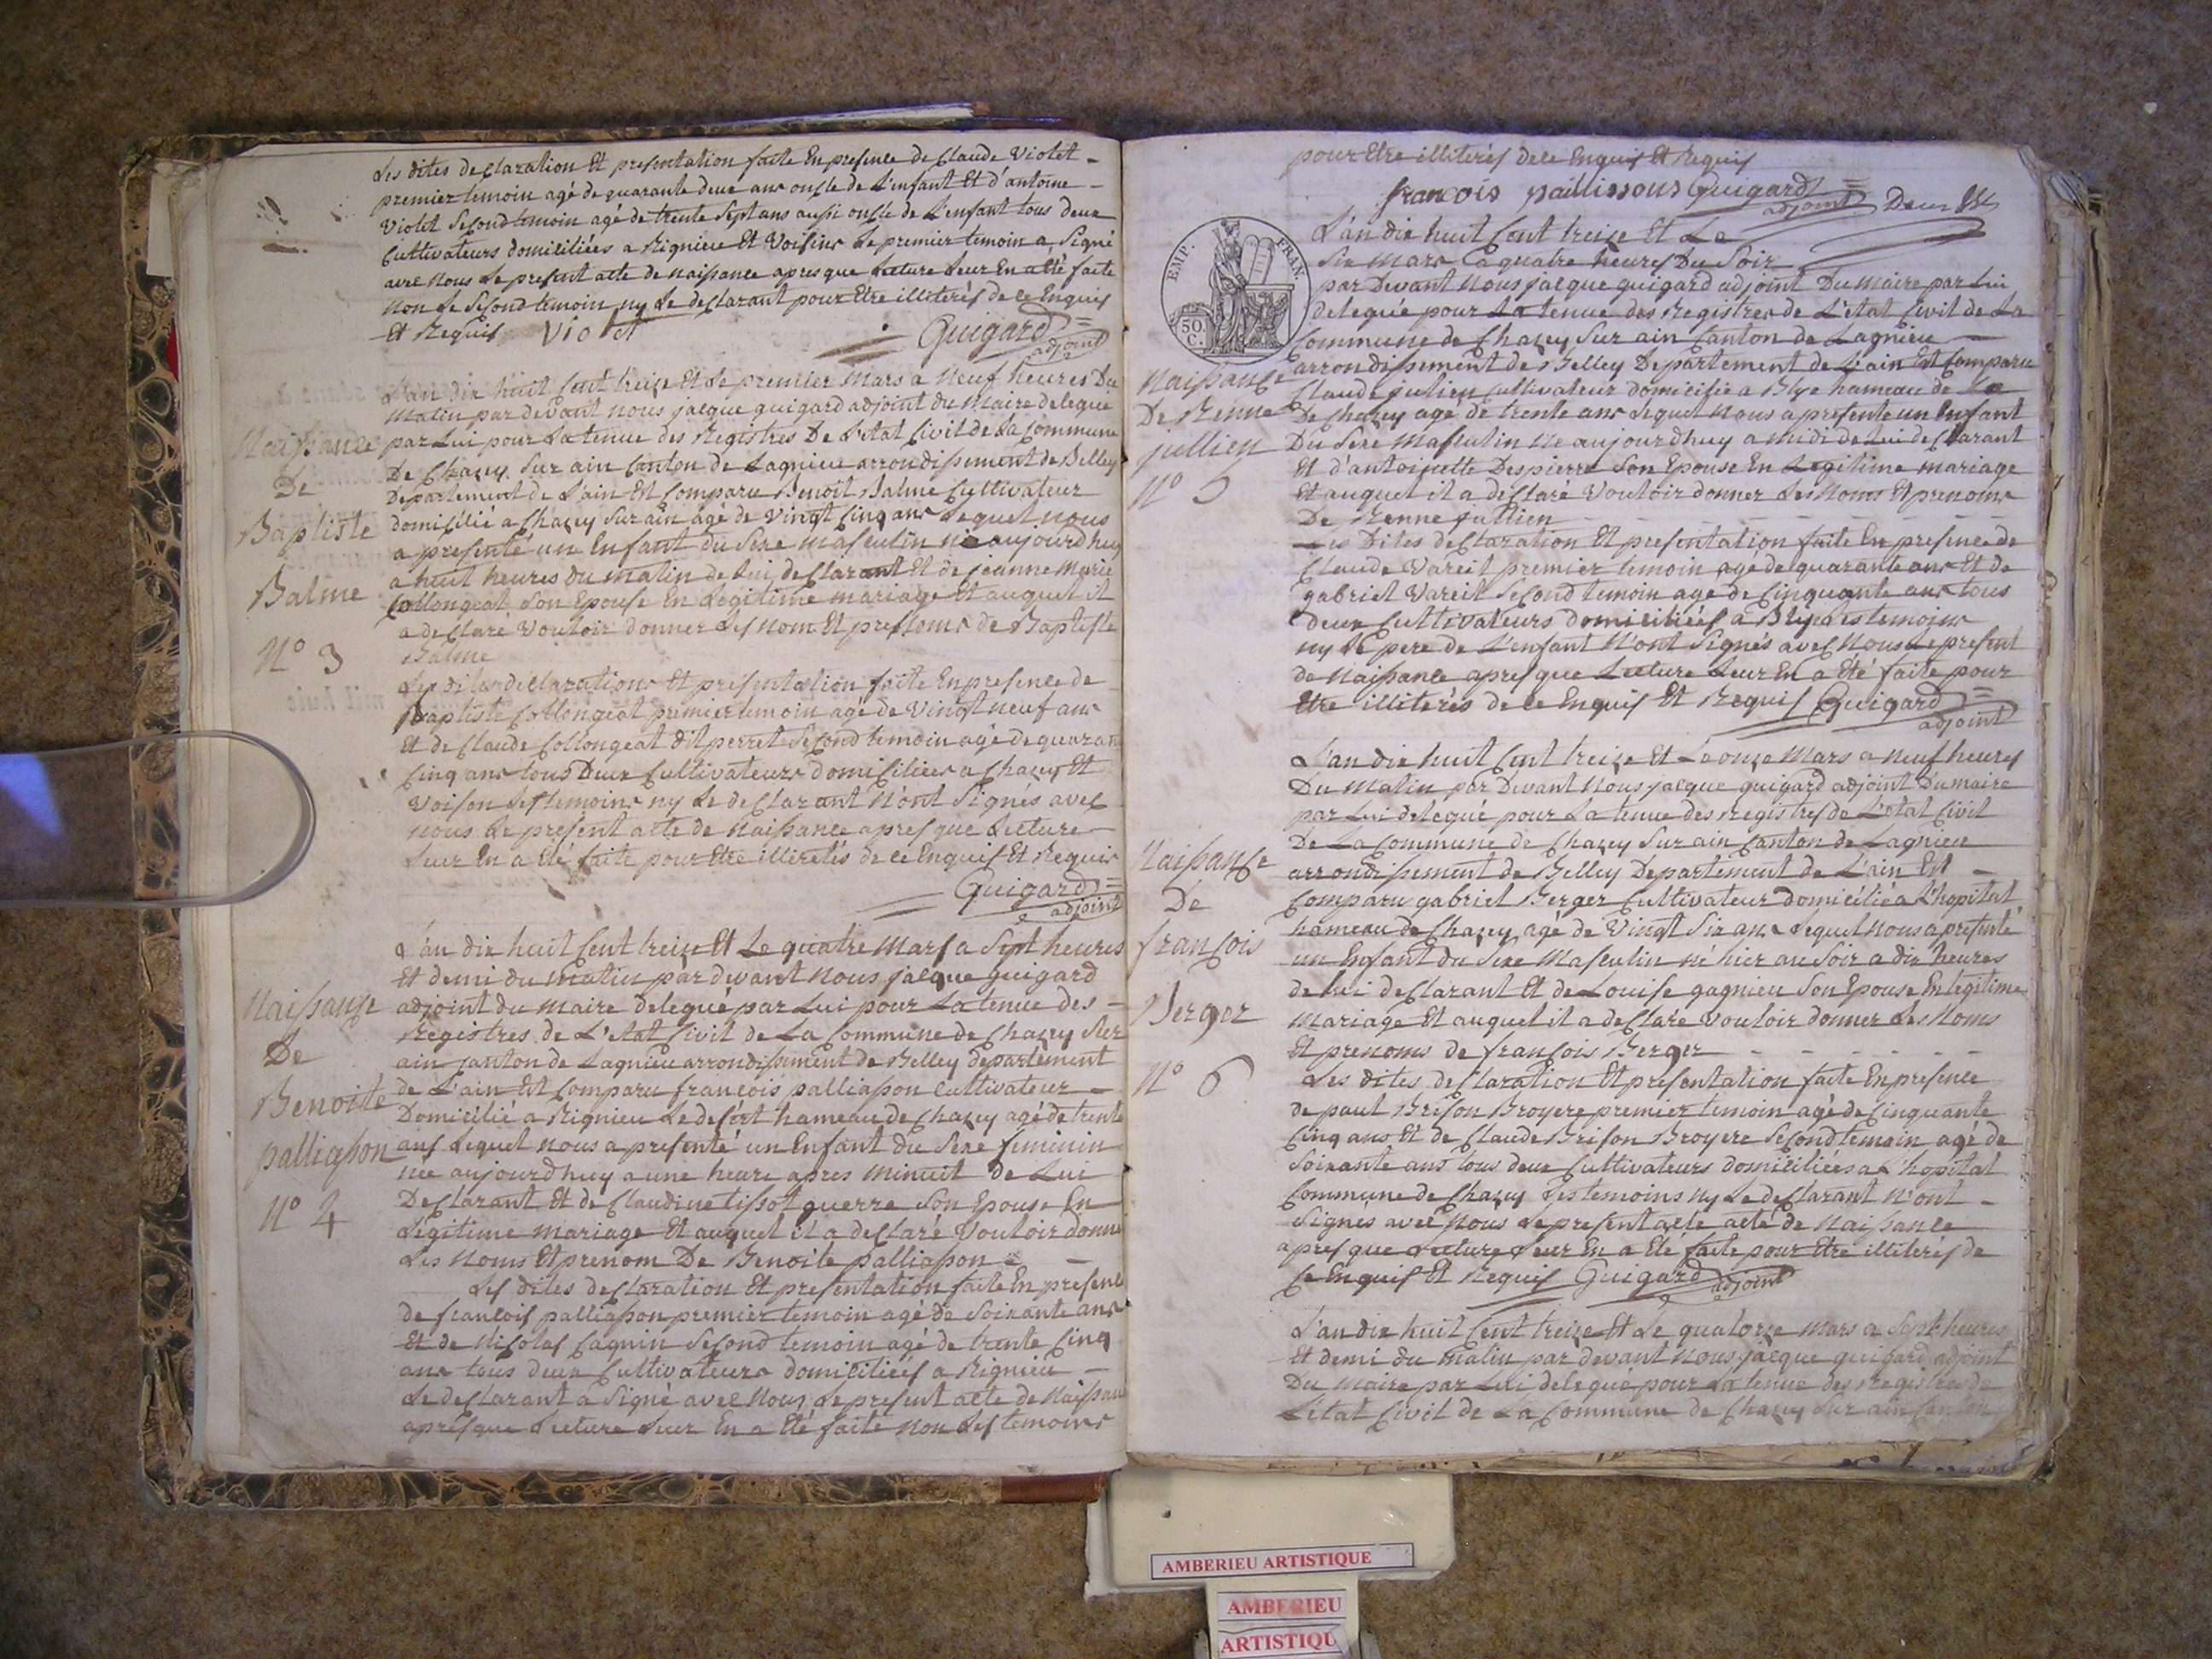 Les dites declaration Et presentation faite En presence de Claude Violet -
premier temoin agé de quarante deux ans oncle de L'enfant Et d'antoine -
Violet Second temoin agé de trente Sept ans aussi oncle de L'enfant tous deux
Cultivateurs domiciliées a Rignieu Et Voisins Le premier temoin a Signé
avec Nous Le present acte de naissance apres que Lecture Leur En a Eté faite
Non Le Second temoin ny Le declarant pour Etre illiterés de ce Enquis
Et Requis Violet Guigard
adjoint
L'an dix huit Cent treize Et Le premier Mars a Neuf heures Du
Matin par devant nous jacque guigard adjoint du Maire delegué
par Lui pour La tenue des Registres De L'etat Civil de La Commune
De Chazey Sur ain Canton de Lagnieu arrondissement de Belley
Departement de L'ain Est Comparu Benoit Balme Cultivateur
domicilié a Chazey Sur ain agé de Vingt Cinq ans Lequel nous
a presenté un Enfant du Sexe masculin né aujourdhuy
a huit heures du matin de Lui declarant Et de jeanne Marie
Collongeat Son Epouse En Legitime mariage Et auquel il
a declaré Vouloir donner Les nom Et prenoms de Baptiste
Balme
Naissance
De
Baptiste
Balme
N° 3
Les dites declarations Et presentation faite En presence de
Baptiste Collongeat premier temoin agé de Vingt neuf ans
Et de Claude Collongeat dit perret Second temoin agé de quarante
Cinq ans tous Deux Cultivateurs domiciliées a Chazey Et
Voison Les temoins ny Le declarant N'ont Signés avec
nous Le present acte de Naissance apres que Lecture -
Leur En a Eté faite pour Etre illiretés de ce Enquis Et Requis
Guigard
adjoint
L'an dix huit Cent treize Et Le quatre Mars a Sept heures
Et demi du Matin par devant Nous jacque Guigard
adjoint du Maire delegué par Lui pour La tenue des -
Registres de L'Etat Civil de La Commune de Chazey Sur
ain Canton de Lagnieu arrondissement de Belley departement
de L'ain Est Comparu françois palliasson Cultivateur -
Domicilié a Rignieu Le desert hameau de Chazey agé de trente
ans Lequel nous a presenté un Enfant du Sexe feminin
née aujourdhuy a une heure apres Minuit de Lui
Declarant Et de Claudine tissot guerre Son Epouse En
Legitime mariage Et auquel il a declaré Vouloir donner
Les Noms Et prenom De Benoite palliasson
Naissance
De
Benoite
palliasson
N° 4
Les dites declaration Et presentation faite En presence
de françois palliasson premier temoin agé de Soixante ans
Et de Nicolas Cagnin Second temoin agé de trente Cinq
ans tous deux Cultivateurs domiciliées a Rignieu -
Le declarant a Signé avec Nous Le present acte de Naissance
apres que Lecture Leur En a Eté faite Non Les temoins
pour Etre illiterés de ce Enquis Et Requis
françois paillissous Guigard
adjoint
EMP. FRAN.
50 C.
L'an dix huit Cent treize Et Le
Six Mars a quatre heures Du Soir
par Devant Nous jacque guigard adjoint Du Maire par Lui
delegué pour La tenue des Registres de L'etat Civil de La
Commune de Chazey Sur ain Canton de Lagnieu
arrondissement de Belley Departement de L'ain Est Comparu
Claude jullien Cultivateur domicilié a Blye hameau de
De Chazey agé de trente ans Lequel Nous a presenté un Enfant
Du Sexe Masculin Né aujourdhuy a midi de Lui declarant
Et d'antoinette Despierre Son Epouse En Legitime mariage
Et auquel il a declaré Vouloir donner Les Noms Et prenoms
De Renne jullien
Naissance
De Renne
jullien
N° 5
Les Dites declaration Et presentation faite En presence de
Claude Vareil premier temoin agé de quarante ans Et de
gabriel Vareil Second temoin agé de Cinquante ans tous
deux Cultivateurs domiciliées a Blye Les temoins
ny Le pere de L'enfant N'ont Signés avec Nous Le present
de Naissance apres que Lecture Leur En a Eté faite pour
Etre illiterés de ce Enquis Et Requis Guigard
adjoint
L'an dix huit Cent treize Et Le onze Mars a Neuf heures
Du Matin par Devant Nous jacque guigard adjoint Du maire
par Lui delegué pour La tenue des Registres de L'etat Civil
De La Commune de Chazey Sur ain Canton de Lagnieu
arrondissement de Belley Departement de L'ain Est -
Comparu gabriel Berger Cultivateur domicilié a L'hopital
hameau de Chazey agé de Vingt Six ans Lequel Nous a presenté
un Enfant du Sexe Masculin né hier au Soir a dix heures
de Lui declarant Et de Louise gagnieu Son Epouse En legitime
Mariage Et auquel il a declaré Vouloir donner Les Noms
Et prenoms de françois Berger
Naissance
De
françois
Berger
N° 6
Les dites declaration Et presentation faite En presence
de paul Brison Broyere premier temoin agé de Cinquante
Cinq ans Et de Claude Brison Broyere Second temoin agé de
Soixante ans tous deux Cultivateurs domiciliées a L'hopital
Commune de Chazey Les temoins ny Le declarant N'ont -
Signés avec Nous Le present acte acte de Naissance
apres que Lecture Leur En a Eté faite pour Etre illiterés de
Ce Enquis Et Requis Guigard adjoint
L'an dix huit Cent treize Et Le quatorze Mars a Sept heures
Et demi du Matin par devant Nous jacque guigard adjoint
Du Maire par Lui delegué pour La tenue des Registres de
L'etat Civil de La Commune de Chazey Sur ain Canton
AMBERIEU ARTISTIQUE
AMBERIEU
ARTISTIQU